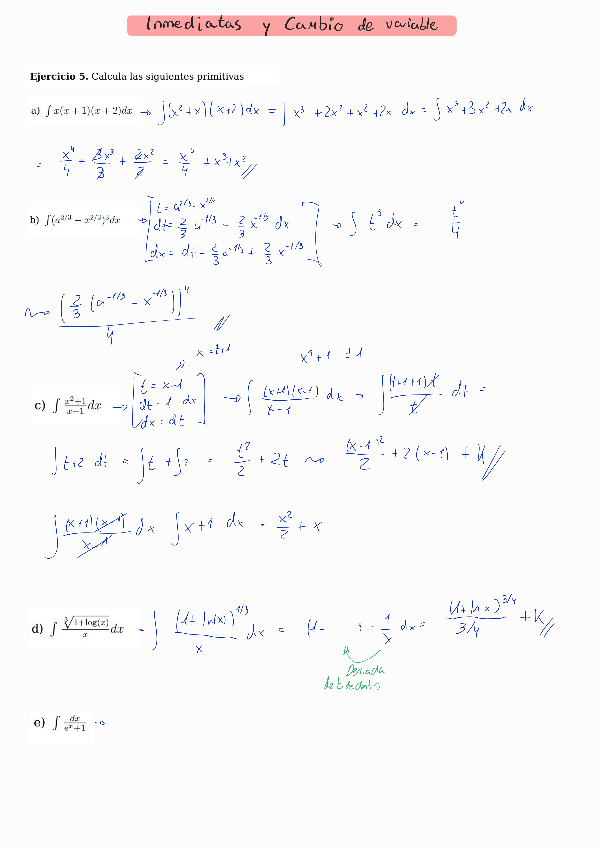 Inmediatas y Cambio de variable
Ejercicio 5. Calcula las siguientes primitivas
a) ∫x(x + 1)(x + 2)dx → ∫(x²+x)(x+2)dx = ∫ x³ + 2x² + x² + 2x dx = ∫ x³+3x²+2x dx
= x⁴/4 + 3x³/3 + 2x²/2 = x⁴/4 + x³+x²//
b) ∫(a^(2/3) − x^(2/3))³dx → [t = a^(2/3) - x^(2/3)
dt = 2/3 a^(-1/3) - 2/3 x^(-1/3) dx
dx = dt - 2/3 a^(-1/3) + 2/3 x^(-1/3)] → ∫ t³ dx = t⁴/4
→ [2/3 (a^(-1/3) - x^(-1/3))]⁴/4 //
x = t+1
x²+1 ±1
c) ∫ (x²+1)/(x−1) dx → [t = x-1
dt = 1 dx
dx = dt] → ∫ (x+1)(x-1)/(x-1) dx = ∫ (t+1+1)t/t dt =
∫t+2 dt = ∫t + ∫2 = t²/2 + 2t → (x-1)²/2 + 2(x-1) + K//
∫ (x+1)(x-1)/(x-1) dx ∫x+1 dx = x²/2 + x
d) ∫ ∛(1+log(x))/x dx = ∫ (1+ln(x))^(1/3)/x dx = · 1/x dx = (1+ln x)^(3/4)/(3/4) + K//
Derivada
de dentro
e) ∫ dx/(eˣ+1) →